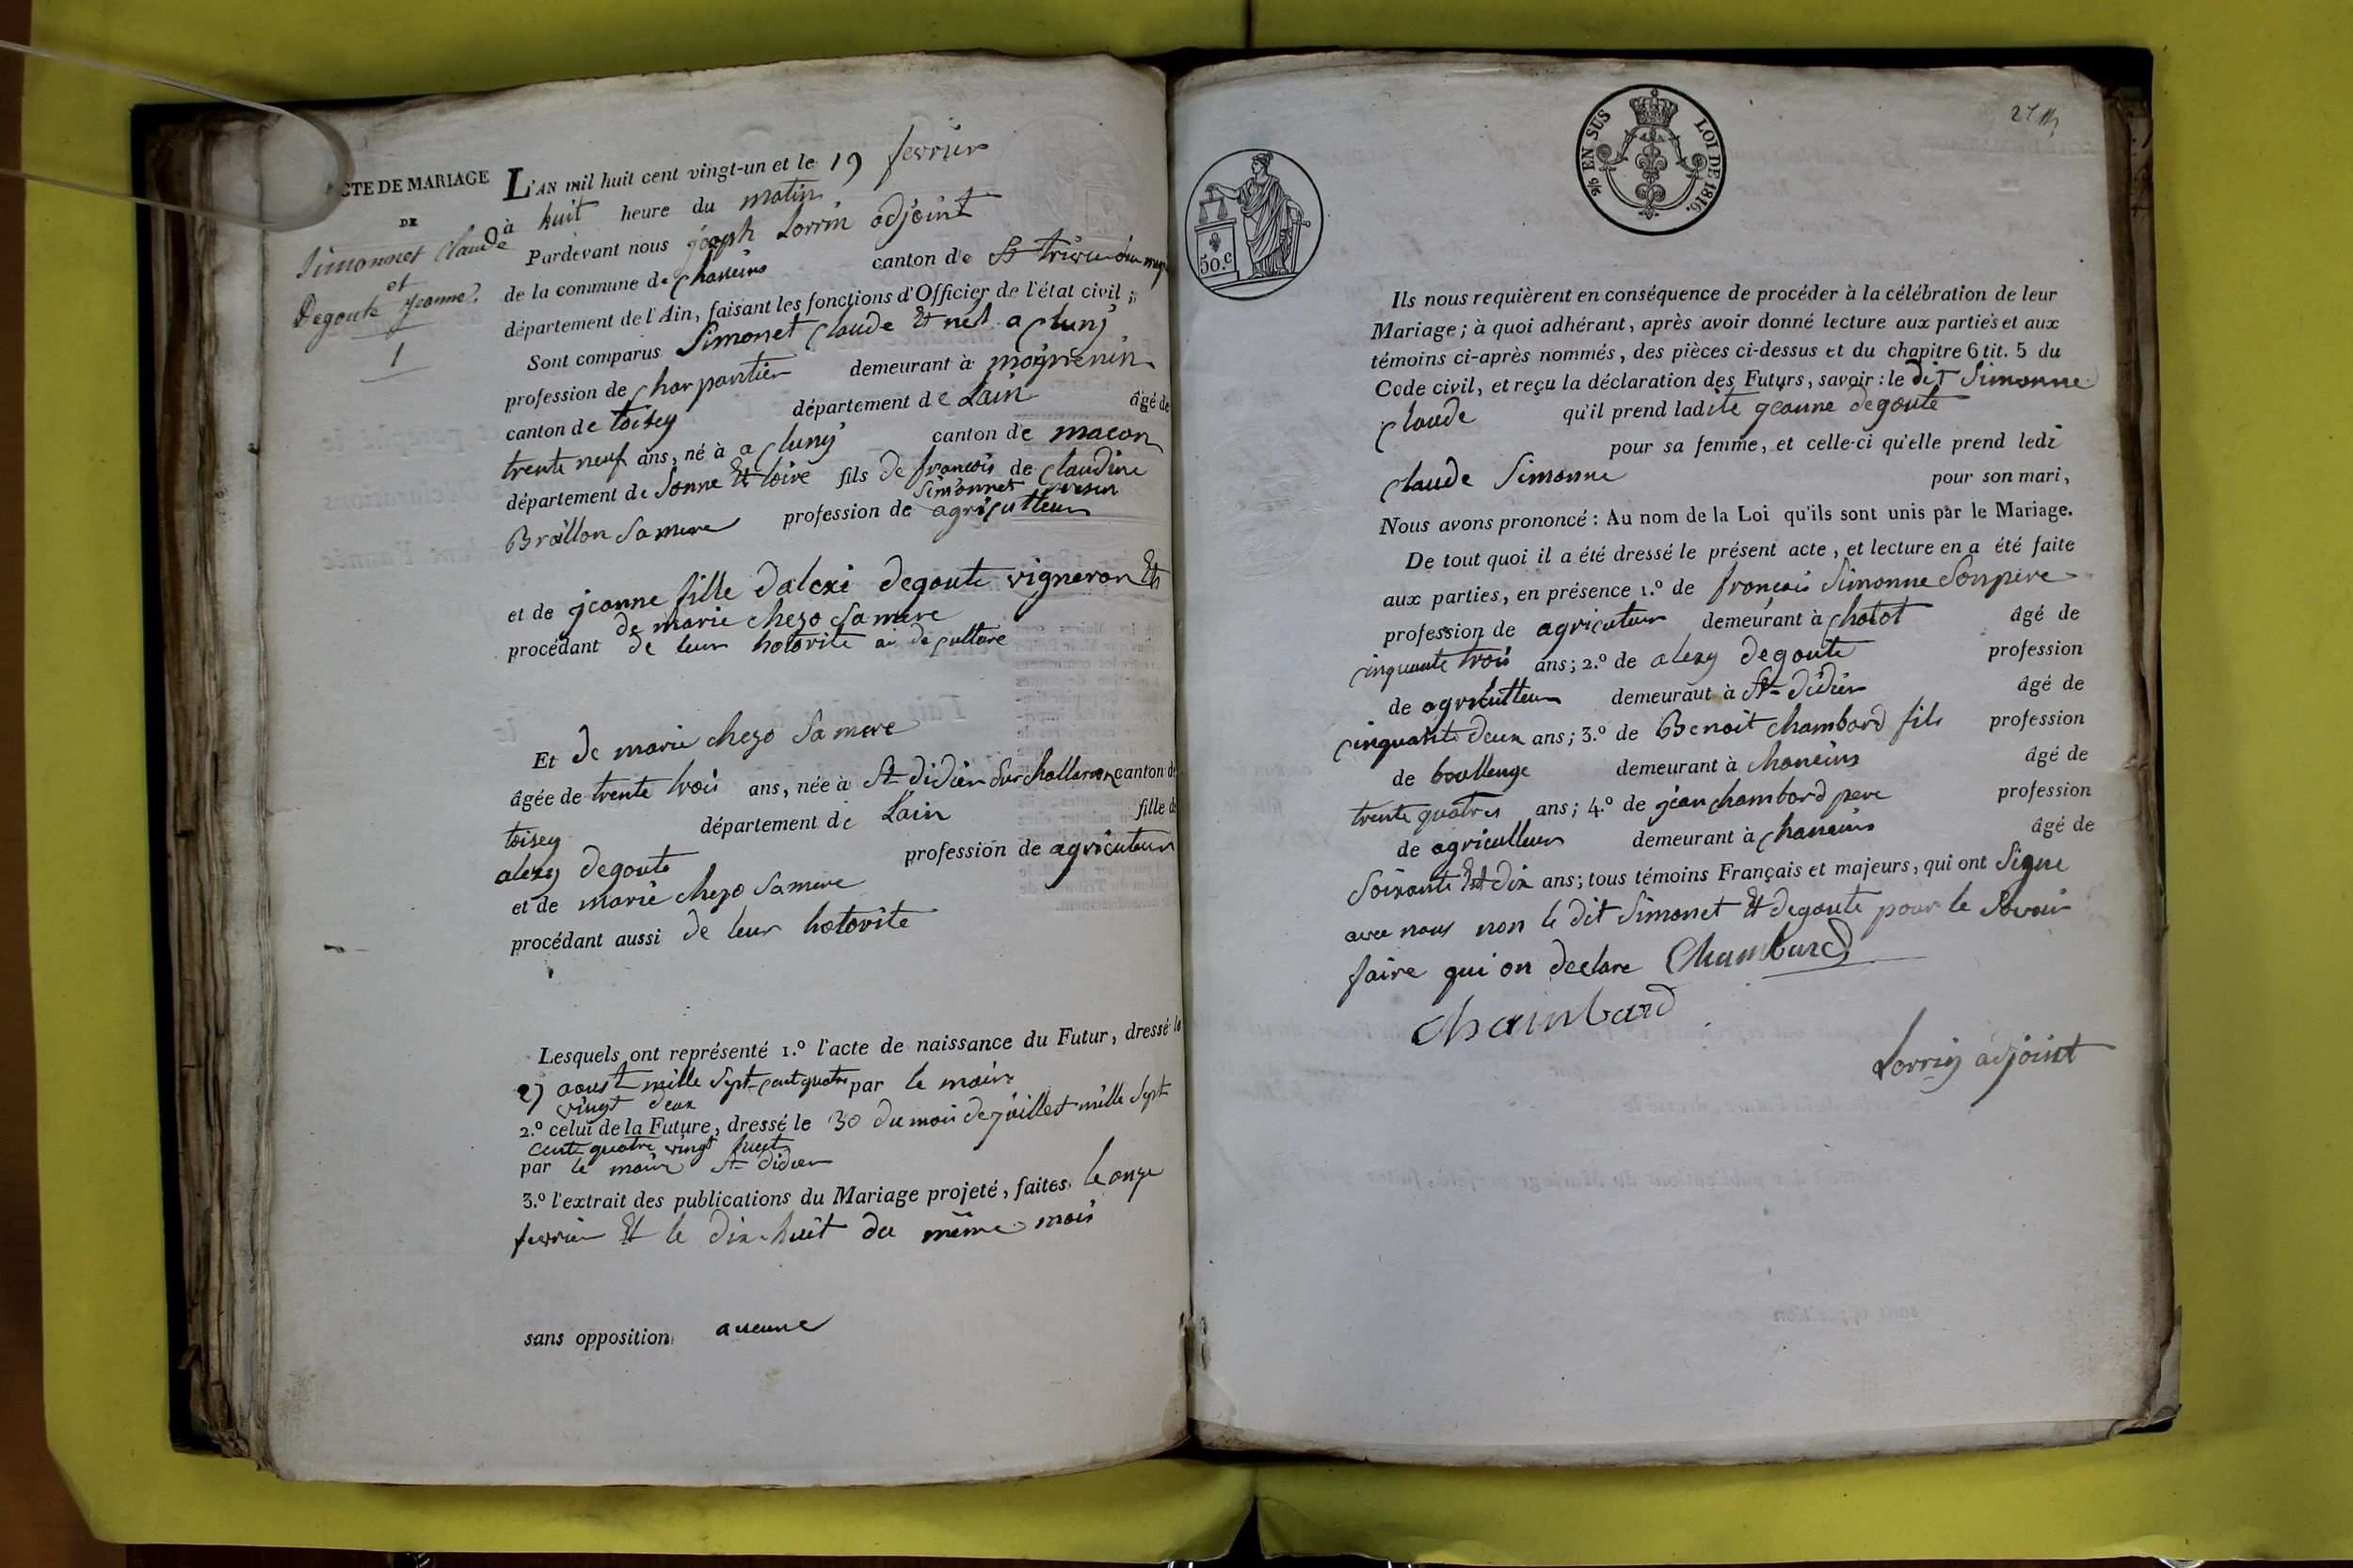 CTE DE MARIAGE
DE
Simonnet Claude
et
Degoute Jeanne
1
L'AN mil huit cent vingt-un et le 19 fevrier
à huit heure du matin
Pardevant nous joseph Lorrin adjoint
de la commune de chaneins canton de St trivier
département de l'Ain, faisant les fonctions d'Officier de l'état civil ;
Sont comparus Simonet claude Et nes a cluny
profession de charpantier demeurant à mognenin
canton de toisey département de Lain âgé de
trente neuf ans, né à a cluny canton de macon
département de Sonne Et loire fils de francois de claudine
Simonnet
Braillon Sa mere profession de agriculteur
et de jeanne fille dalexi degoute vigneron Et
de marie chezo Sa mere
procédant de leur hotorite ai de culture
Et de marie chezo Sa mere
âgée de trente trois ans, née à St didier Sur challaron canton de
toisey département de Lain fille de
alexy degoute profession de agriculteur
et de marie chezo Sa mere
procédant aussi de leur hotorite
Lesquels ont représenté 1.º l'acte de naissance du Futur, dressé le
27 aoust mille Sept cent quatre par le maire
vingt deux
2.º celui de la Future, dressé le 30 du mois de juillet mille Sept
cent quatre vingt huit
par le maire St didier
3.º l'extrait des publications du Mariage projeté, faites le onze
fevrier Et le dix-huit du même mois
sans opposition aucune
2/5 EN SUS LOI DE 1816.
50.c
Ils nous requièrent en conséquence de procéder à la célébration de leur
Mariage ; à quoi adhérant, après avoir donné lecture aux parties et aux
témoins ci-après nommés, des pièces ci-dessus et du chapitre 6 tit. 5 du
Code civil, et reçu la déclaration des Futurs, savoir : le dit Simonne
claude qu'il prend ladite jeanne degoute
pour sa femme, et celle-ci qu'elle prend ledi
claude Simonne pour son mari,
Nous avons prononcé : Au nom de la Loi qu'ils sont unis par le Mariage.
De tout quoi il a été dressé le présent acte, et lecture en a été faite
aux parties, en présence 1.º de francois Simonne Son pere
profession de agriculteur demeurant à chatot âgé de
cinquante trois ans ; 2.º de alexy degoute profession
de agriculteur demeurant à St didier âgé de
cinquante deux ans ; 3.º de Benoit chambard fils profession
de boullenge demeurant à chaneins âgé de
trente quatres ans ; 4.º de jean chambard pere profession
de agriculteur demeurant à chaneins âgé de
Soixante Et dix ans ; tous témoins Français et majeurs, qui ont Signe
avec nous non le dit Simonet Et degoute pour le Savoir
faire qui on declare Chambard
Chambard
Lorrin adjoint